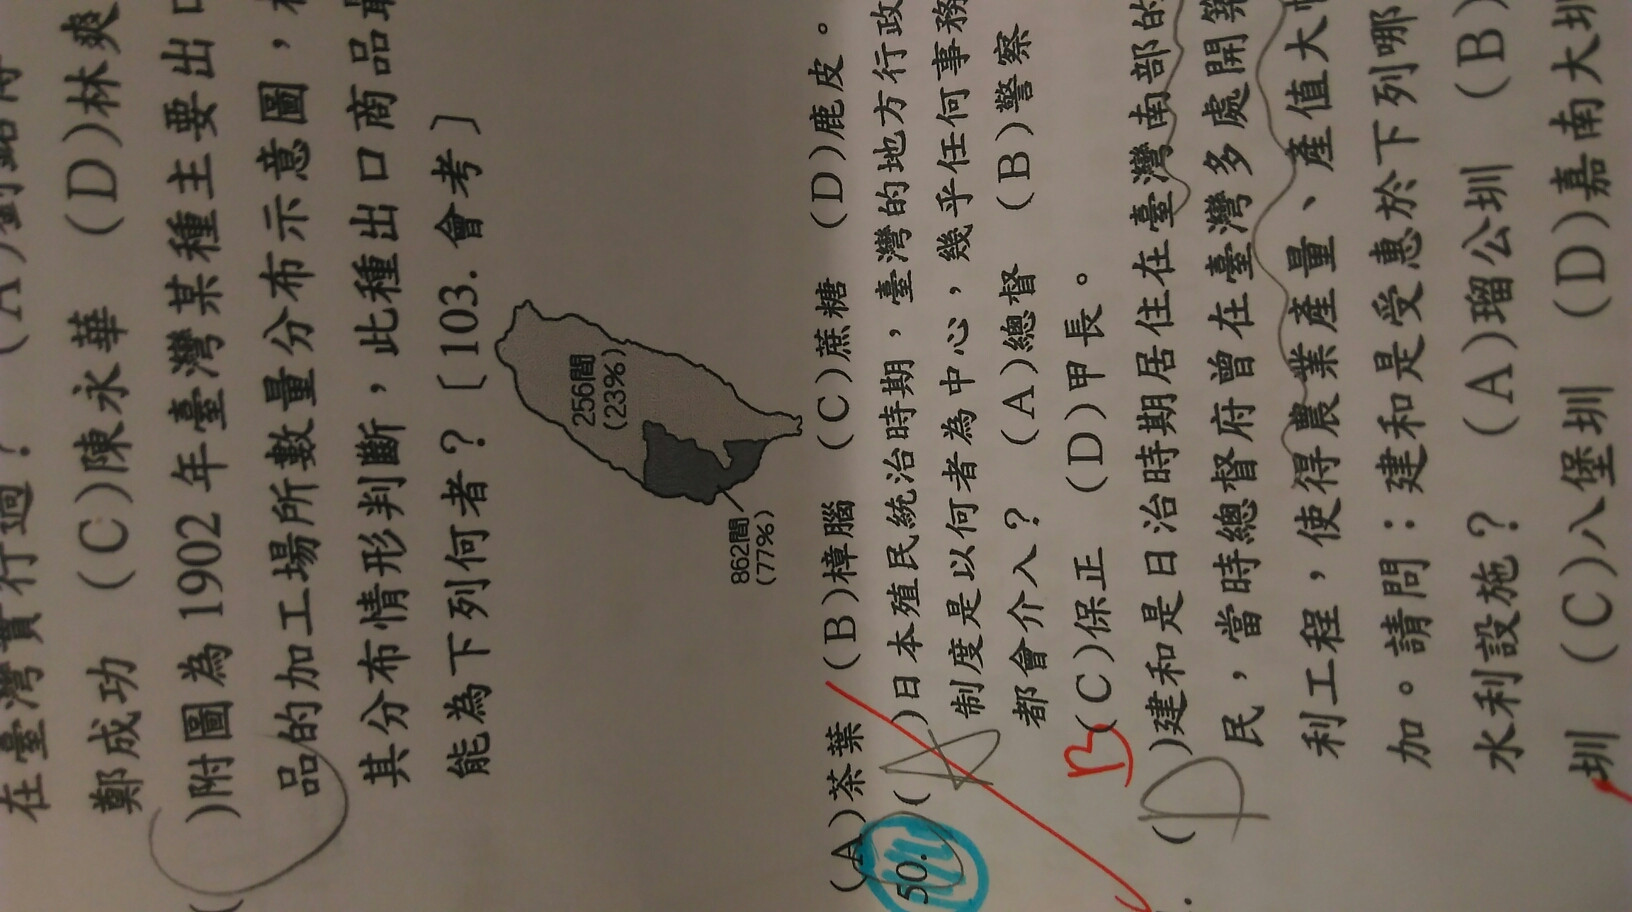 在臺灣實行過？
鄭成功 (C)陳永華 (D)林爽
)附圖為1902年臺灣某種主要出口
品的加工場所數量分布示意圖，
其分布情形判斷，此種出口商品最
能為下列何者？〔103.會考〕
256間
(23%)
862間
(77%)
(A)茶葉 (B)樟腦 (C)蔗糖 (D)鹿皮。
50. ( A )日本殖民統治時期，臺灣的地方行政
制度是以何者為中心，幾乎任何事務
都會介入？ (A)總督 (B)警察
B (C)保正 (D)甲長。
( D )建和是日治時期居住在臺灣南部的
民，當時總督府曾在臺灣多處開築
利工程，使得農業產量、產值大
加。請問：建和是受惠於下列哪
水利設施？ (A)瑠公圳 (B)
圳 (C)八堡圳 (D)嘉南大圳